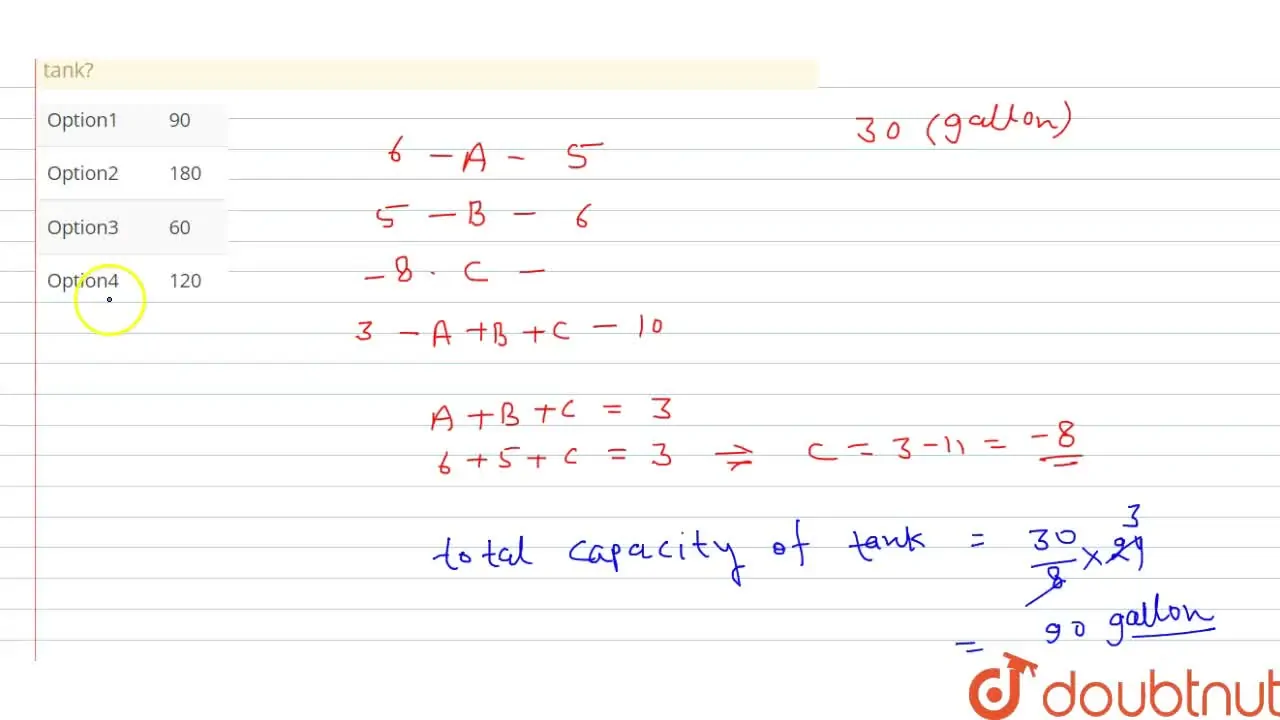 tank?
Option1 90
Option2 180
Option3 60
Option4 120
30 (gallon)
6 - A - 5
5 - B - 6
-8 . C -
3 - A + B + C - 10
A + B + C = 3
6 + 5 + C = 3 ⇒ C = 3 - 11 = -8
total capacity of tank = 30/8 × 24 3
= 90 gallon
doubtnut